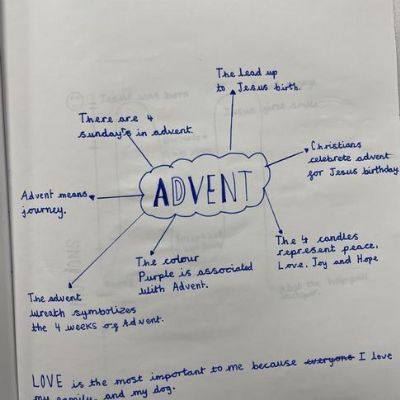 The lead up
to Jesus birth.
There are 4
sunday's in advent.
Christians
celebrate advent
for Jesus birthday
ADVENT
Advent means
journey.
The 4 candles
represent peace,
Love, Joy and Hope
The colour
Purple is associated
with Advent.
The advent
wreath symbolizes
the 4 weeks of Advent.
LOVE is the most important to me because everyone I love
my family, and my dog.